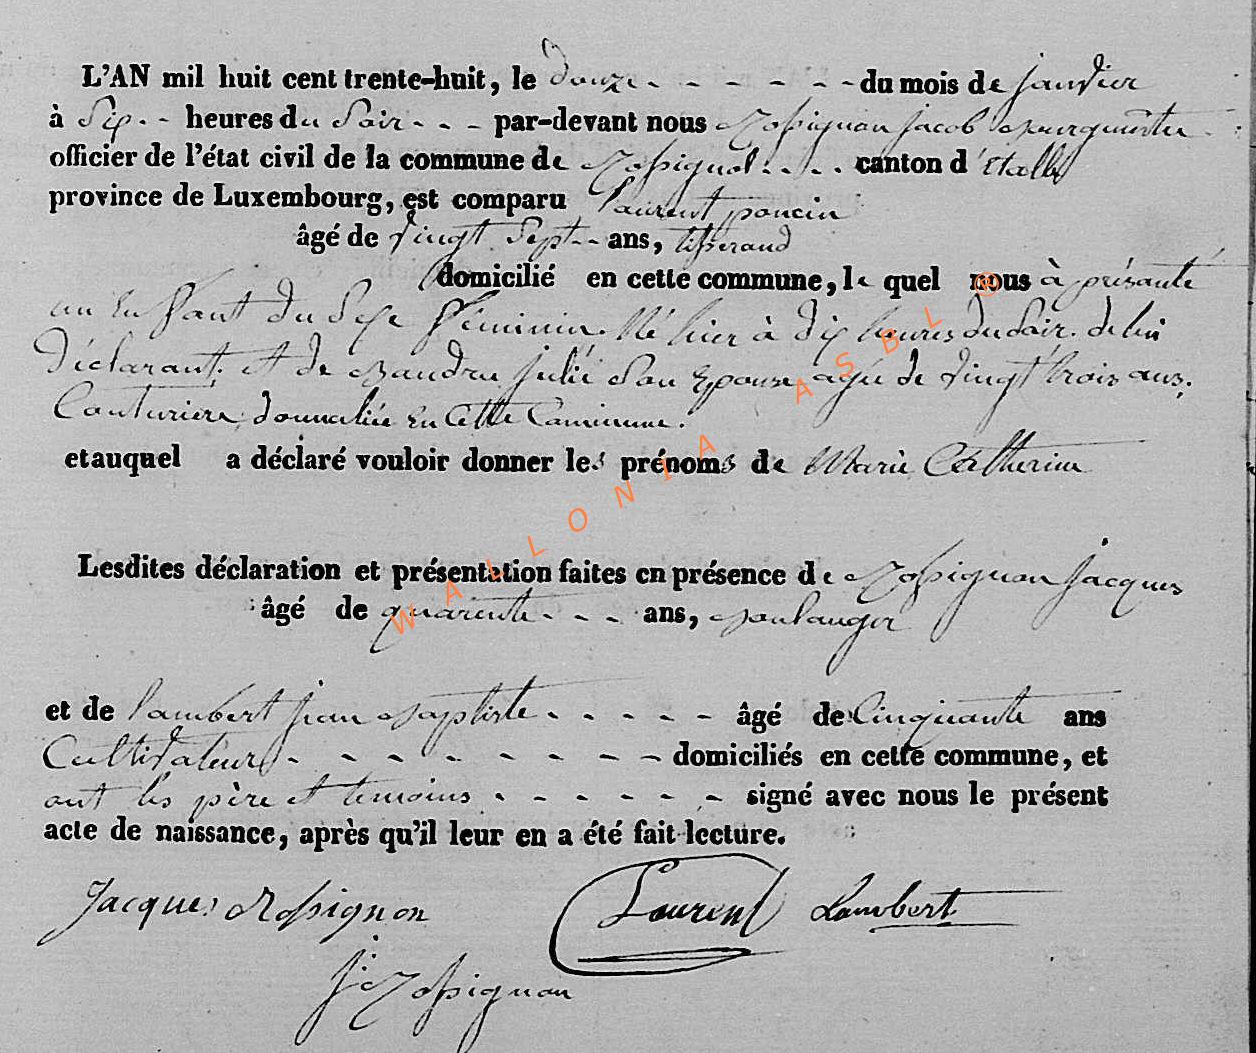 L'AN mil huit cent trente-huit, le douze - - - - - - du mois de janvier
à Six - - heures du Soir - - - par-devant nous Rossignon jacob Bourgmestre -
officier de l'état civil de la commune de Rossignol - - - - canton d'Etalle
province de Luxembourg, est comparu laurent poncin
âgé de vingt Sept - - ans, tisserand
domicilié en cette commune, le quel nous à présanté
un Enfant du Sexe féminin. Né hier à dix heures du Soir. de lui
déclarant. et de Baudru julié Son Epouse agée de vingt trois ans,
Couturière, domiciliée En Cette Commune.
et auquel a déclaré vouloir donner les prénoms de Marie Catherine
Lesdites déclaration et présentation faites en présence de Rossignon jacques
âgé de quarente - - - ans, Boulanger
et de lambert jean Baptiste - - - - - âgé de Cinquante ans
Cultivateurs - - - - - - - - domiciliés en cette commune, et
ont les père et temoins - - - - - - signé avec nous le présent
acte de naissance, après qu'il leur en a été fait lecture.
Jacques Rossignon Laurent Lambert
J: Rossignon
WALLONIA ASBL ©